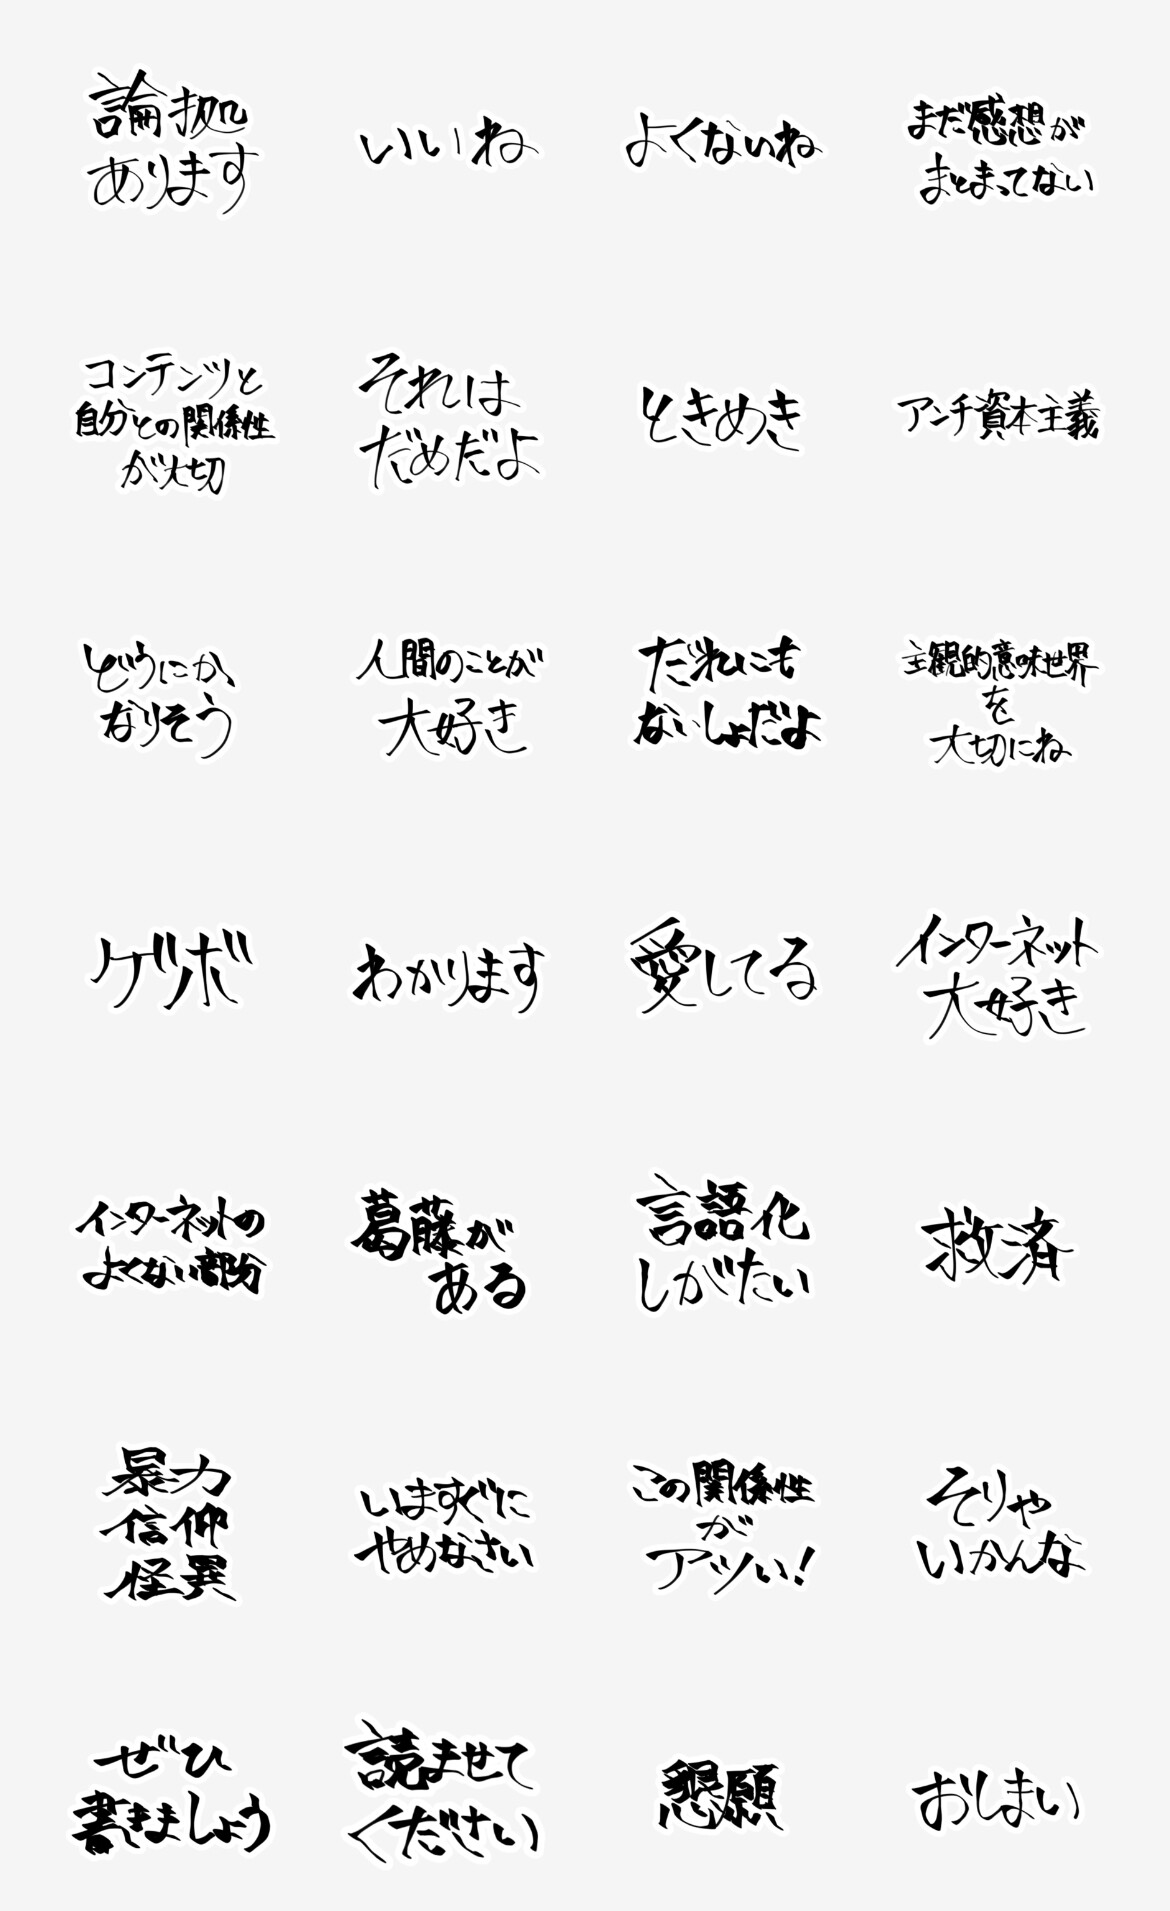 論拠
あります
いいね
よくないね
まだ感想が
まとまってない
コンテンツと
自分との関係性
が大切
それは
だめだよ
ときめき
アンチ資本主義
どうにか
なりそう
人間のことが
大好き
だれにも
ないしょだよ
主観的意味世界
を
大切にね
ゲツボ
わかります
愛してる
インターネット
大好き
インターネットの
よくない部分
葛藤が
ある
言語化
しがたい
救済
暴力
信仰
怪異
いますぐに
やめなさい
この関係性
が
アツい!
そりゃ
いかんな
ぜひ
書きましょう
読ませて
ください
懇願
おしまい